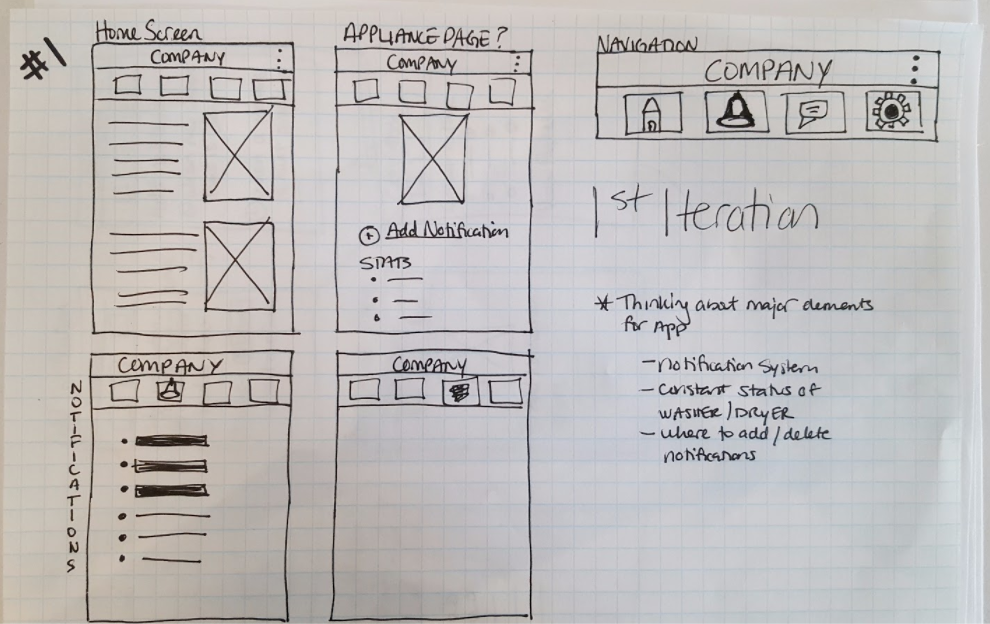 #1
Home Screen
COMPANY
APPLIANCE PAGE?
COMPANY
Add Notification
STATS
NAVIGATION
COMPANY
1st Iteration
* Thinking about major elements
for App
- notification System
- constant status of
WASHER/DRYER
- where to add/delete
notifications
NOTIFICATIONS
COMPANY
COMPANY